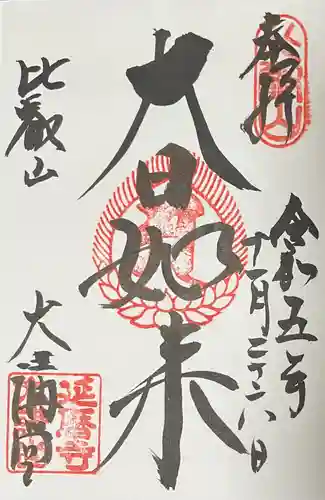 奉拝
令和五年
十一月二十八日
大日如来
比叡山
大講堂
延暦寺